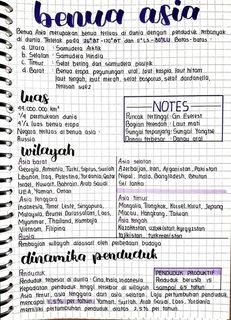 benua asia
Benua Asia merupakan benua terluas di dunia dengan penduduk terbanyak
di dunia. Terletak pada
a. Utara : Samudera Arktik
b. Selatan : Samudera Hindia
c. Timur : Selat Bering dan samudera pasifik
d. Barat : Benua eropa, pegunungan ural, laut kaspia, laut hitam
laut tengah, laut merah, selat bosporus, selat dardanella,
terusan suez
luas
44.000.000 km²
1/4 permukaan dunia
4 1/2 luas benua eropa
Negara terluas di benua asia :
Russia
NOTES
Puncak tertinggi : Gn. Everest
Bagian terendah : Laut mati
Sungai terpanjang : Sungai Yangtze
Danau terluas :
wilayah
Asia barat
Georgia, Armenia, Turki, Siprus, Suriah
Lebanon, Iraq, Palestina, Yordania
Israel, Kuwait, Bahrain, Arab Saudi
UEA, Yaman, Oman
Asia selatan
Azerbaijan, Iran, Afganistan, Pakistan
Nepal, India, Bangladesh, Bhutan
Sri Lanka
Asia tenggara
Indonesia, Timor Leste, Singapura,
Malaysia, Brunei Darussalam, Laos,
Myanmar, Thailand, Kamboja
Vietnam, Filipina
Rusia
Asia timur
Mongolia, Tiongkok, Korsel, Korut, Jepang
Macau, Hongkong, Taiwan
Asia tengah
Kazakhstan, uzbekistan, kyrgyzstan
tajikistan, turkmenistan
Pembagian wilayah diawali oleh perbedaan budaya
dinamika penduduk
Penduduk
Penduduk terbesar di dunia : Cina, India, Indonesia
Kepadatan penduduk tinggi tersebar di wilayah
Asia timur, asia tenggara dan asia selatan. Laju pertumbuhan penduduk
mencapai 1,5% per tahun. Yaman, Suriah, Arab Saudi, Laos, Yordania
memiliki pertumbuhan penduduk diatas 2,5% per tahun.
PENDUDUK PRODUKTIF
Penduduk berusia 15
sampai 65 tahun